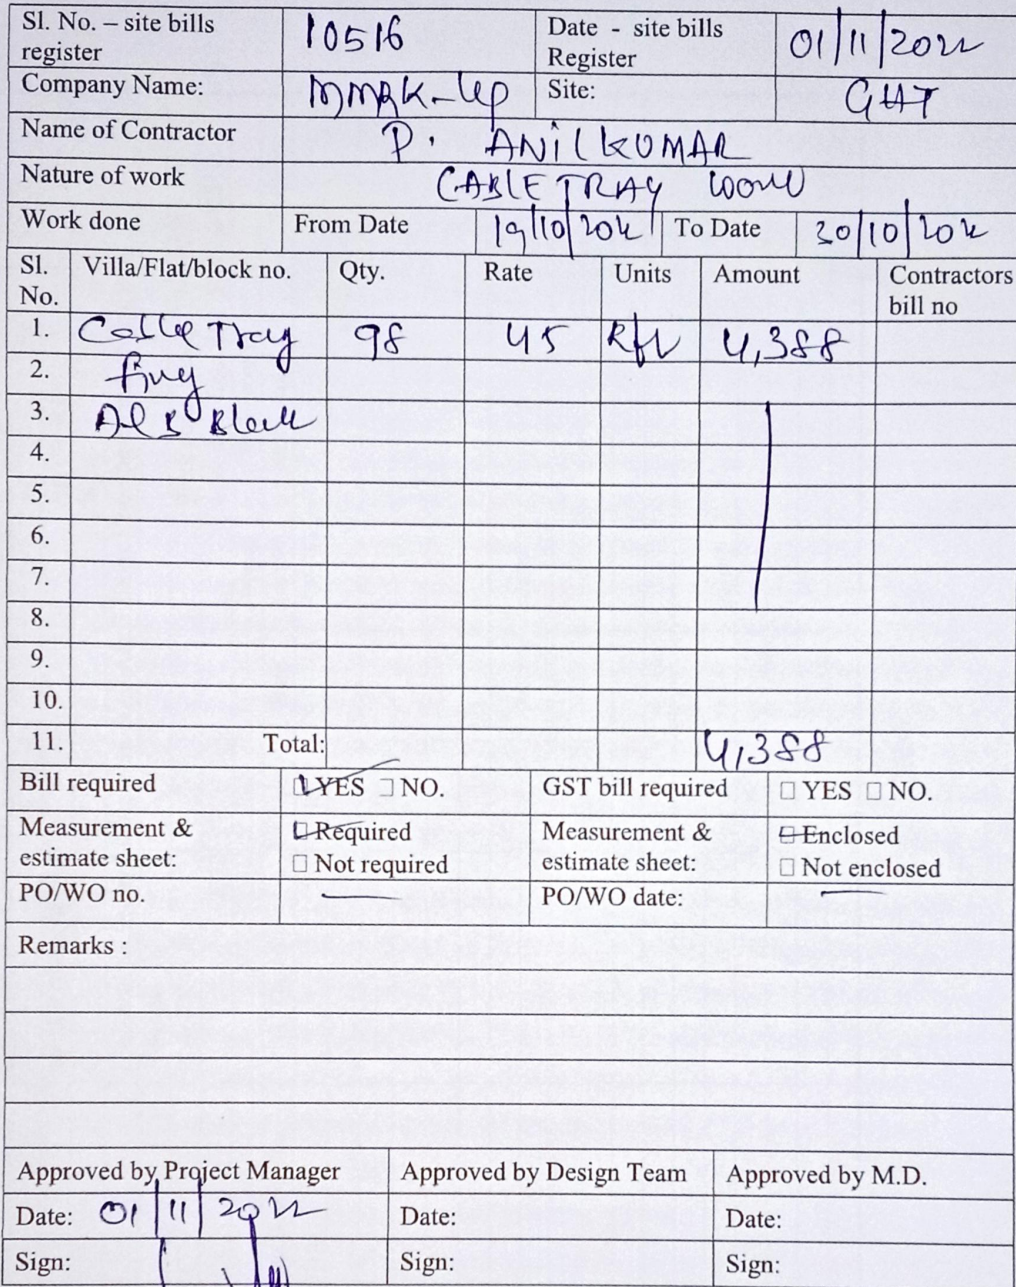 Sl. No. – site bills register 10516 Date - site bills Register 01/11/2022
Company Name: Site: GHT
Name of Contractor P. ANILKUMAR
Nature of work CABLE TRAY WORK
Work done From Date 19/10/2022 To Date 20/10/2022
Sl. No. Villa/Flat/block no. Qty. Rate Units Amount Contractors bill no
1. Cable Tray 98 45 Rft 4,388
2.
3. Block
4.
5.
6.
7.
8.
9.
10.
11. Total: 4,388
Bill required YES NO. GST bill required YES NO.
Measurement & estimate sheet: Required Measurement & estimate sheet: Enclosed
Not required Not enclosed
PO/WO no. PO/WO date:
Remarks :
Approved by Project Manager Approved by Design Team Approved by M.D.
Date: 01/11/2022 Date: Date:
Sign: Sign: Sign: